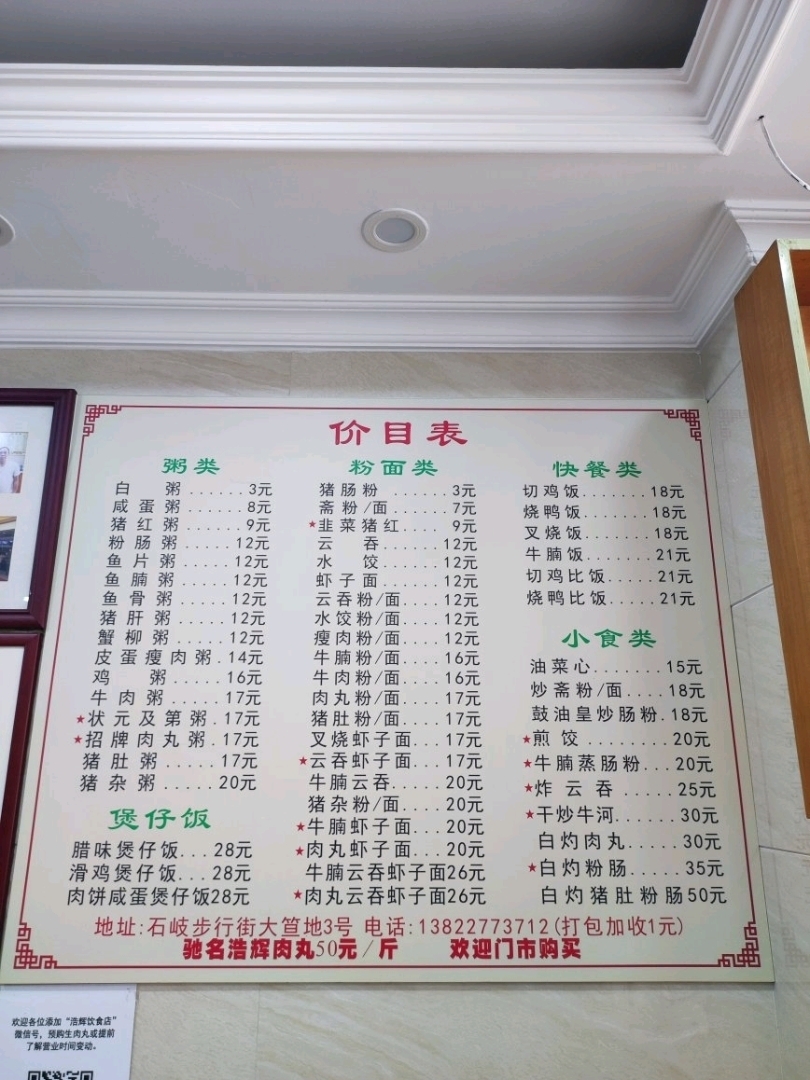 价目表
粥类
白粥......3元
咸蛋粥......8元
猪红粥.....9元
粉肠粥.....12元
鱼片粥.....12元
鱼腩粥.....12元
鱼骨粥.....12元
猪肝粥.....12元
蟹柳粥.....12元
皮蛋瘦肉粥.14元
鸡粥.....16元
牛肉粥.....17元
★状元及第粥.17元
★招牌肉丸粥.17元
猪肚粥.....17元
猪杂粥.....20元
煲仔饭
腊味煲仔饭...28元
滑鸡煲仔饭...28元
肉饼咸蛋煲仔饭28元
粉面类
猪肠粉......3元
斋粉/面......7元
★韭菜猪红....9元
云吞......12元
水饺......12元
虾子面......12元
云吞粉/面....12元
水饺粉/面....12元
瘦肉粉/面....12元
牛腩粉/面....16元
牛肉粉/面....16元
肉丸粉/面....17元
猪肚粉/面....17元
叉烧虾子面...17元
★云吞虾子面...17元
牛腩云吞.....20元
猪杂粉/面....20元
★牛腩虾子面...20元
★肉丸虾子面...20元
牛腩云吞虾子面26元
★肉丸云吞虾子面26元
快餐类
切鸡饭.......18元
烧鸭饭.......18元
叉烧饭.......18元
牛腩饭.......21元
切鸡比饭.....21元
烧鸭比饭.....21元
小食类
油菜心.......15元
炒斋粉/面....18元
鼓油皇炒肠粉.18元
★煎饺........20元
★牛腩蒸肠粉...20元
★炸云吞.....25元
★干炒牛河.....30元
白灼肉丸.....30元
★白灼粉肠.....35元
白灼猪肚粉肠50元
地址:石岐步行街大笪地3号 电话:13822773712(打包加收1元)
驰名浩辉肉丸50元/斤 欢迎门市购买
欢迎各位添加“浩辉饮食店”
微信号，预购生肉丸或提前
了解营业时间变动。